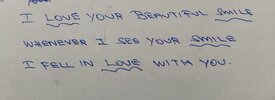 I LOVE YOUR BEAUTIFUL SMILE
WHENEVER I SEE YOUR SMILE
I FELL IN LOVE WITH YOU.